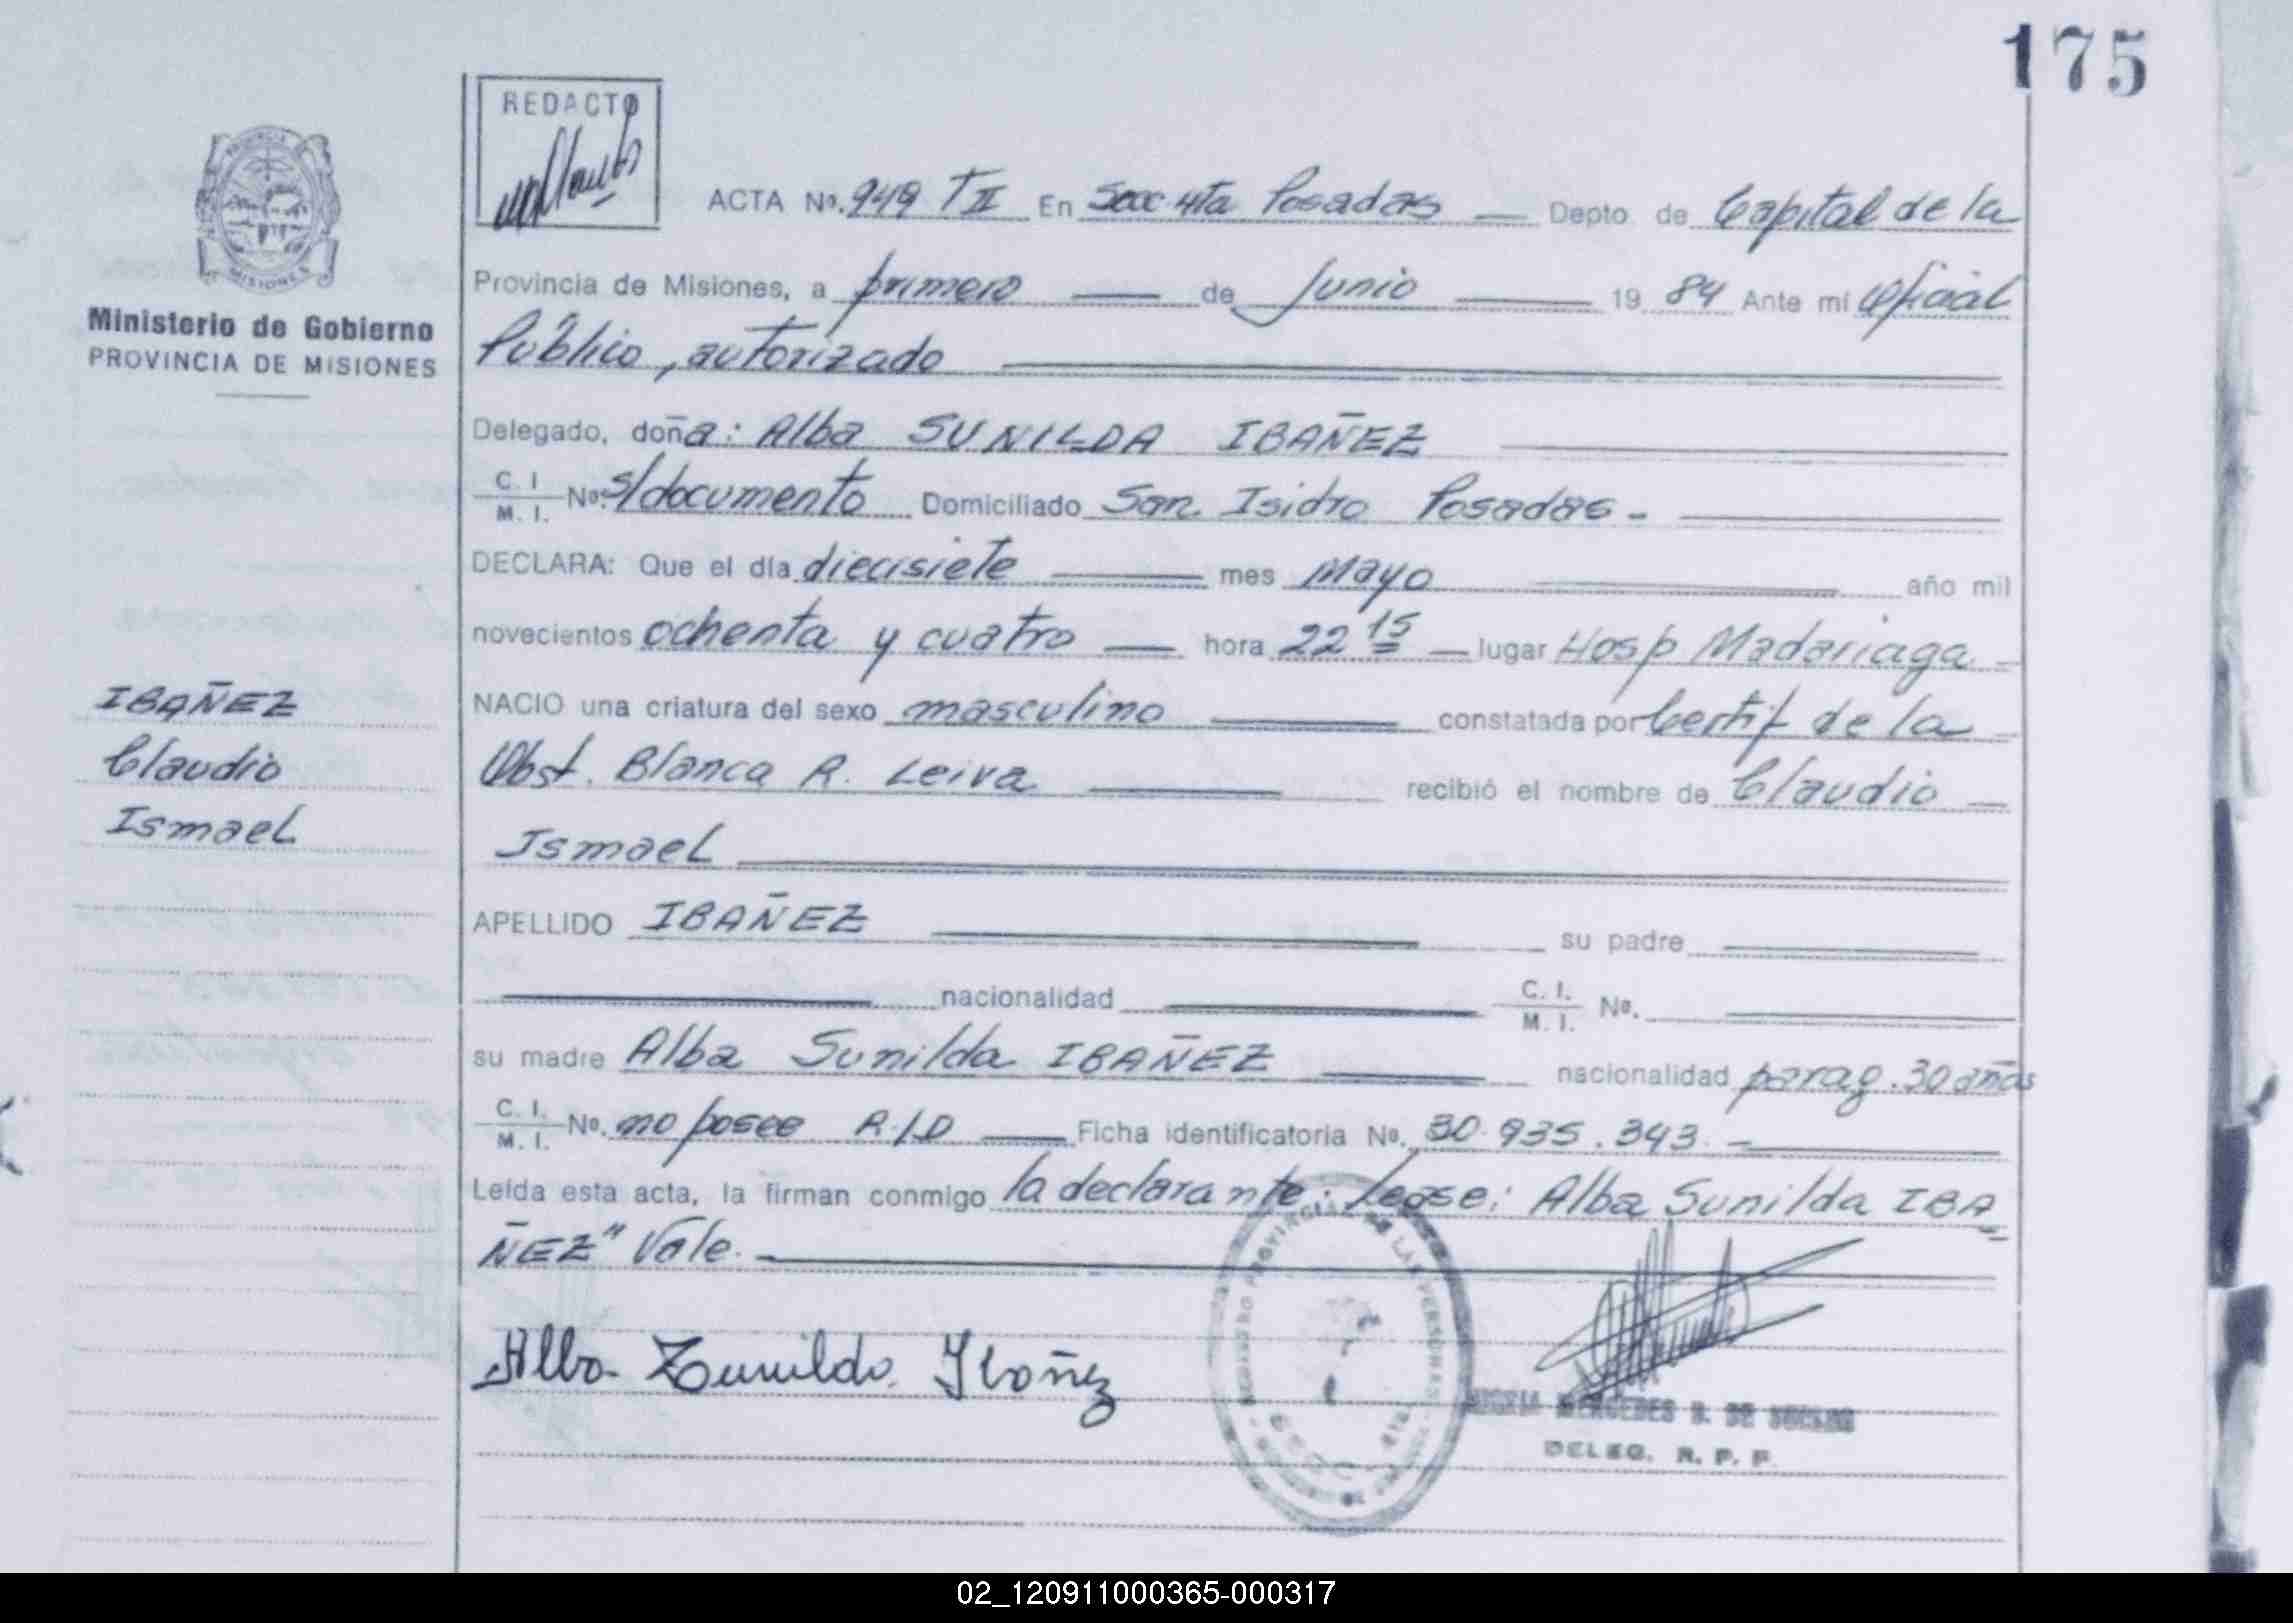 175
REDACTO
PROVINCIA DE
MISIONES
Ministerio de Gobierno
PROVINCIA DE MISIONES
ACTA No. 949 TII En Secc 4ta Posadas — Depto. de Capital de la
Provincia de Misiones, a primero — de Junio — 19 84 Ante mi Oficial
Público, autorizado
Delegado, doña: Alba SUNILDA IBAÑEZ
C. I. M. I. No. s/documento Domiciliado San Isidro Posadas -
DECLARA: Que el día diecisiete — mes Mayo — año mil
novecientos ochenta y cuatro — hora 22 15 — lugar Hosp Madariaga -
NACIO una criatura del sexo masculino — constatada por Certif de la
Obst. Blanca R. Leiva — recibió el nombre de Claudio —
Ismael
APELLIDO IBAÑEZ — su padre —
— nacionalidad — C. I. M. I. No. —
su madre Alba Sunilda IBAÑEZ — nacionalidad parag. 30 años
C. I. M. I. No. no posee R/D — Ficha identificatoria No. 30.935.343. —
Leída esta acta, la firman conmigo la declarante: Lease: Alba Sunilda IBA
ÑEZ" Vale.
IBAÑEZ
Claudio
Ismael
Alba Zunilda Ibañez
REGISTRO PROVINCIAL DE LAS PERSONAS
MERCEDES B. DE
DELEG. R. P. P.
02_120911000365-000317